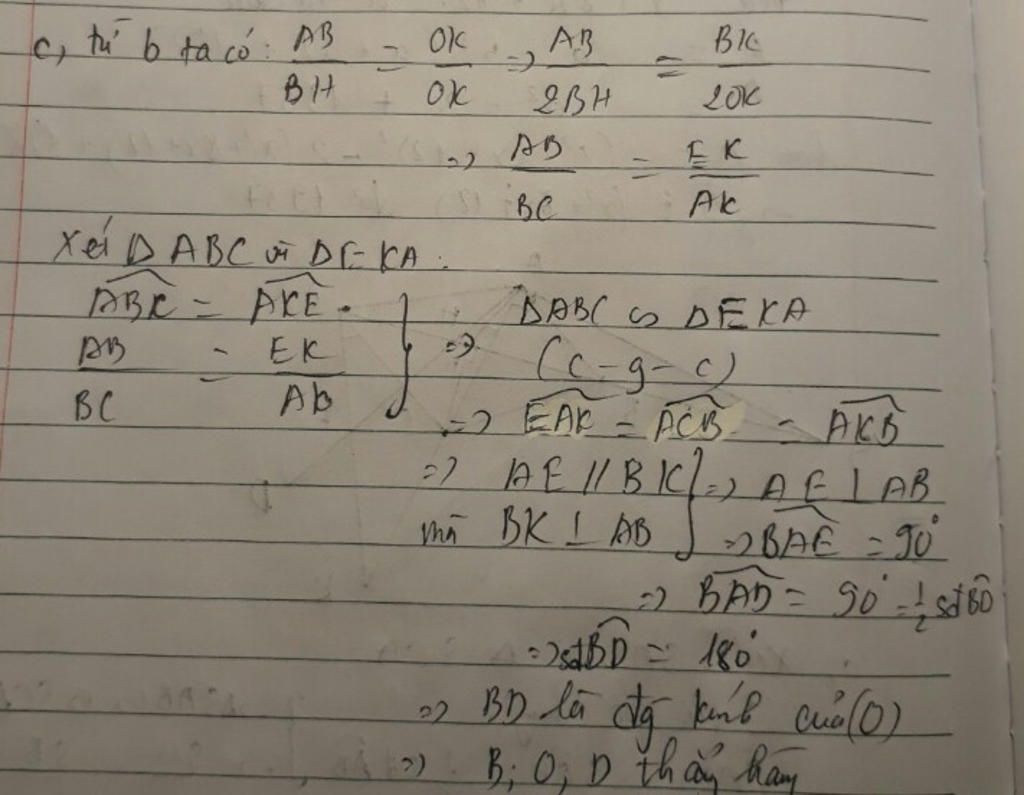 c, từ b ta có: AB/BH = OK/OK => AB/2BH = BK/2OK
=> AB/BC = EK/AK
Xét Δ ABC và Δ EKA:
ABK = AKE
AB/BC = EK/Ab } => ΔABC ∽ ΔEKA
(c-g-c)
=> EAK = ACB = AKB
=> AE // BK
mà BK ⊥ AB } => AE ⊥ AB
=> BAE = 90°
=> BAD = 90° = 1/2 sđBD
=> sđBD = 180°
=> BD là đg kính của (O)
=> B; O, D thẳng hàng